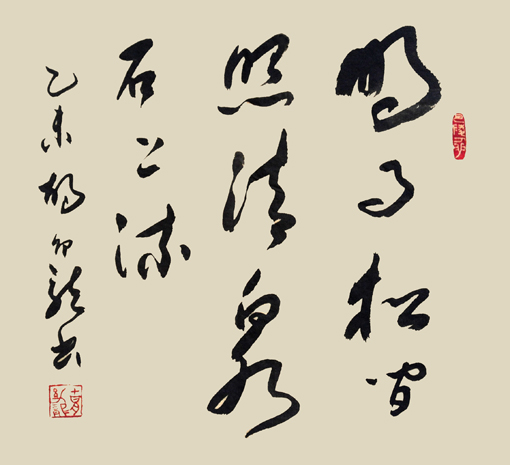 明月松间
照清泉
石上流
乙未 龙书